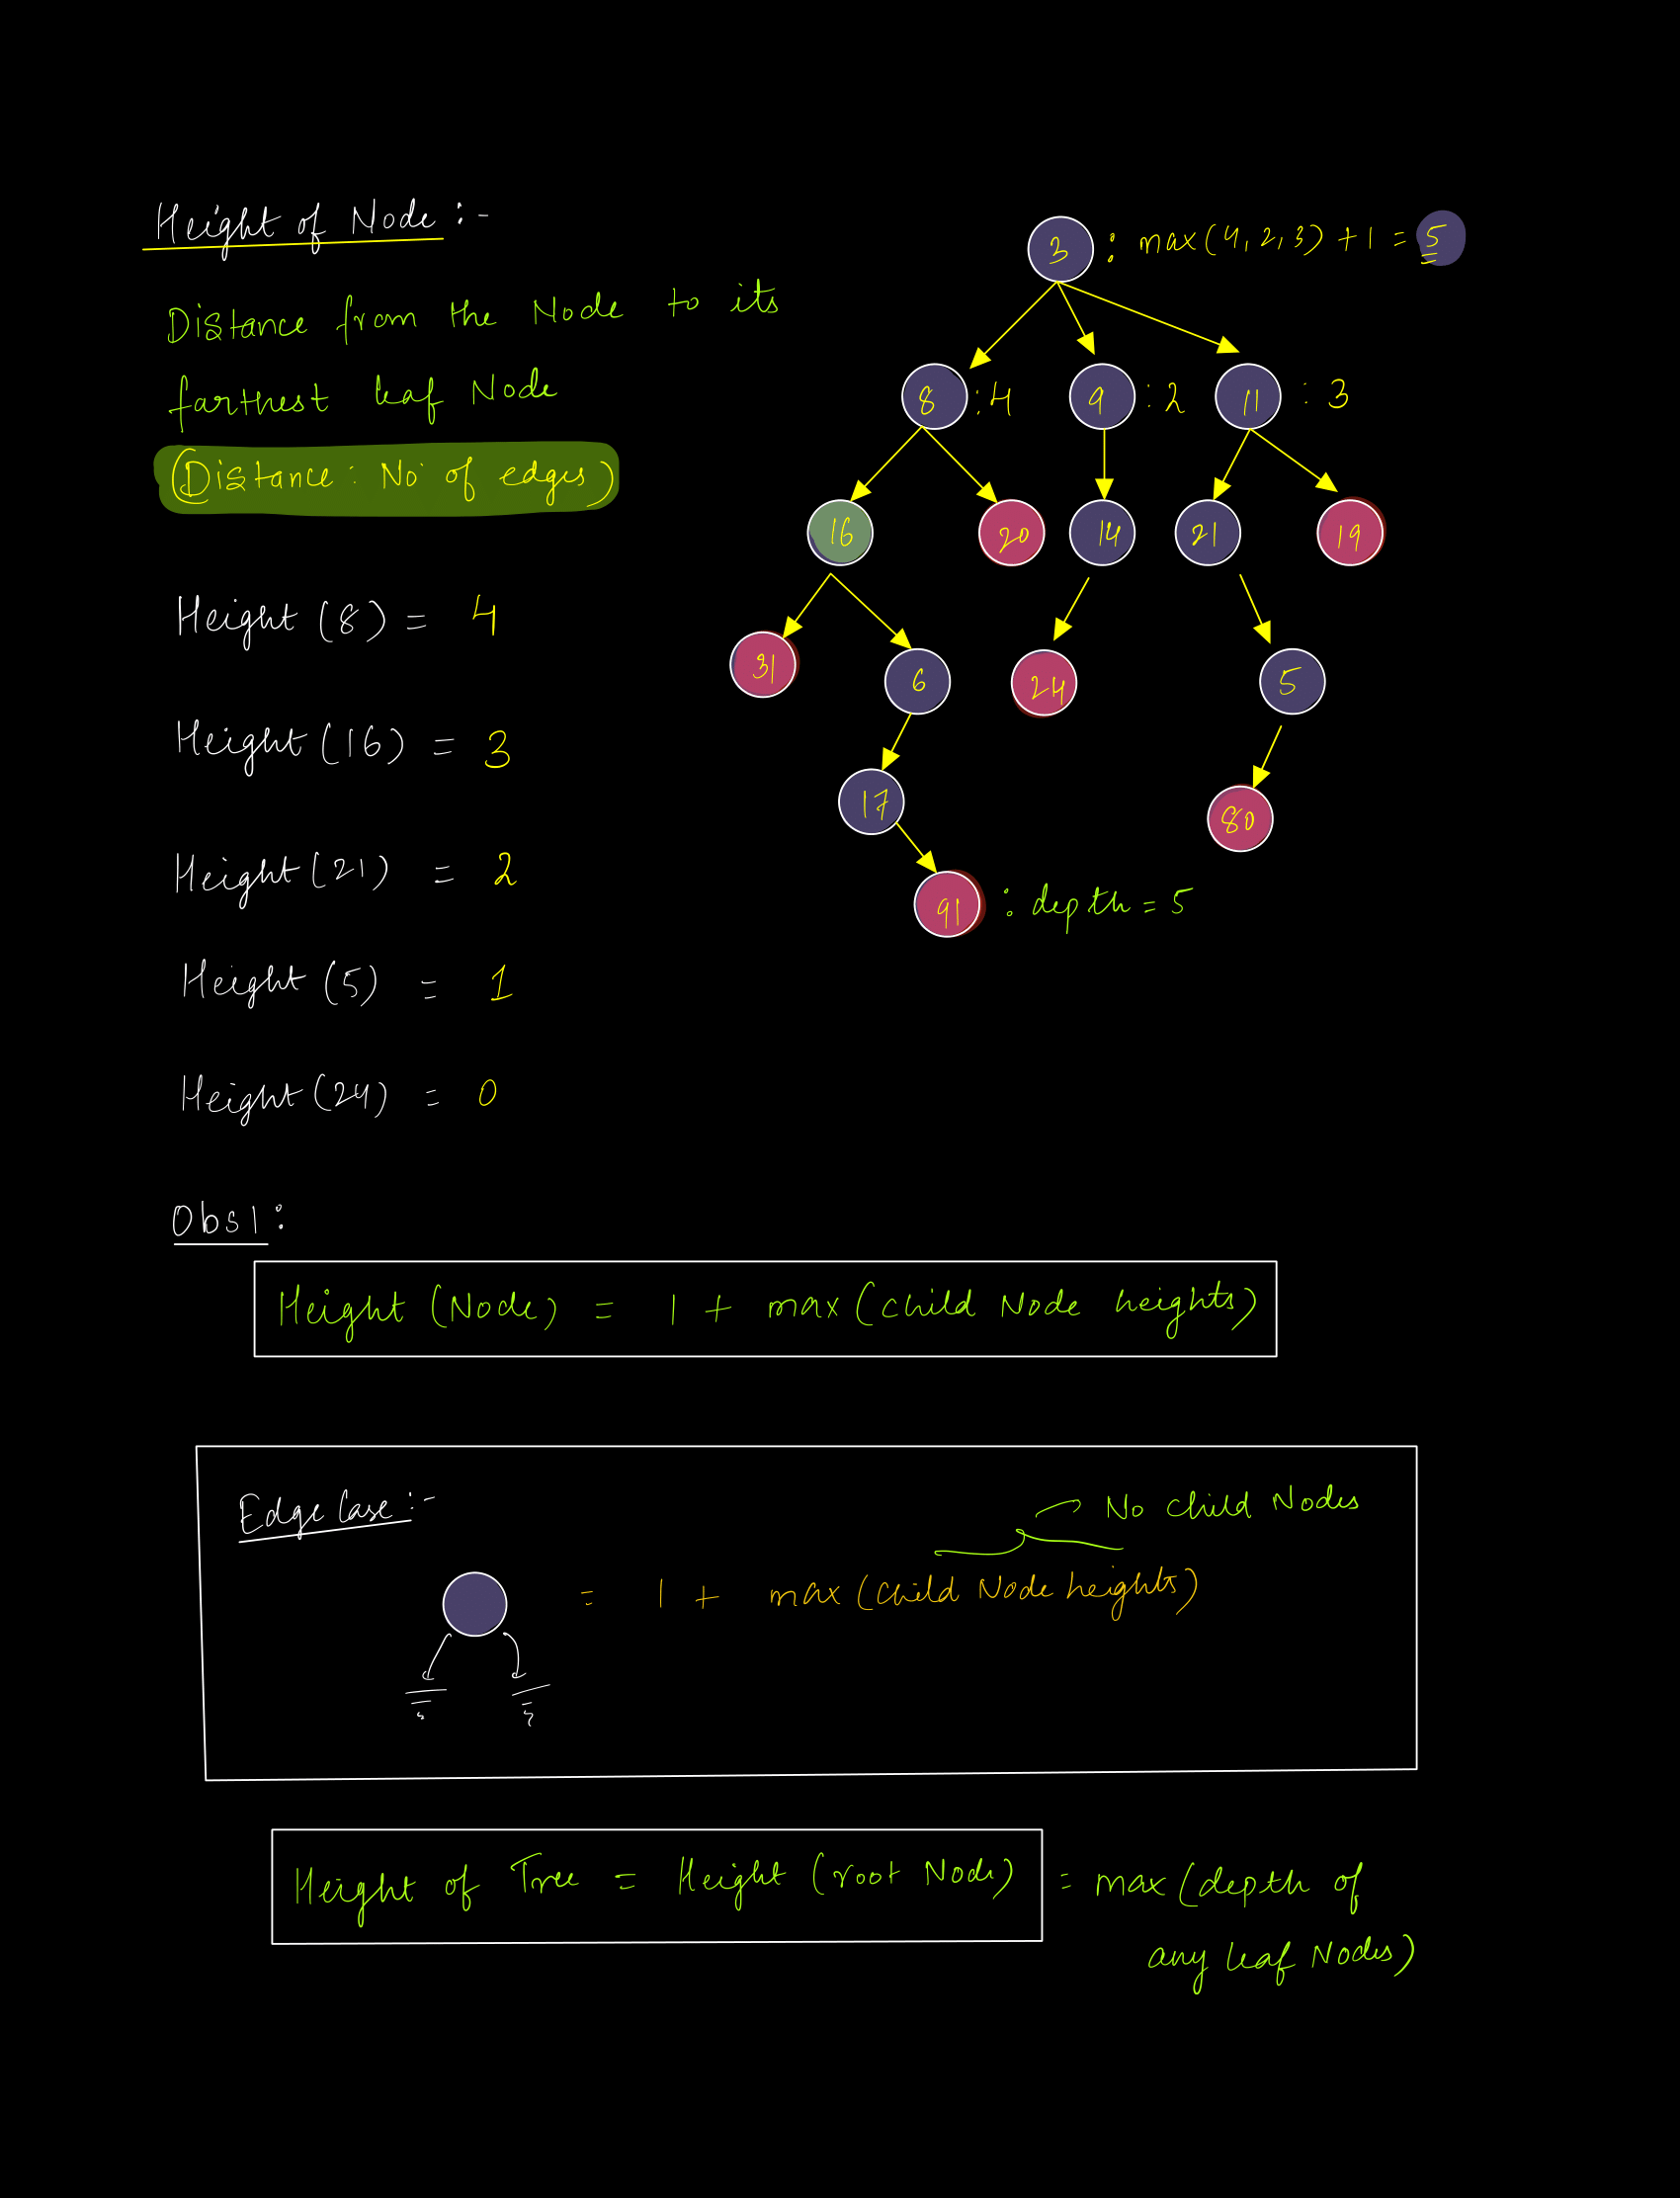 Height of Node :-
Distance from the Node to its
farthest leaf Node
(Distance: No of edges)
Height (8) = 4
Height (16) = 3
Height (21) = 2
Height (5) = 1
Height (24) = 0
3 : max(4, 2, 3) + 1 = 5
8 : 4 9 : 2 11 : 3
16 20 14 21 19
31 6 24 5
17 80
91 : depth = 5
Obs1:
Height (Node) = 1 + max (child Node heights)
Edge Case :-
No child Nodes
= 1 + max (child Node heights)
Height of Tree = Height (root Node) = max (depth of
any leaf Nodes)